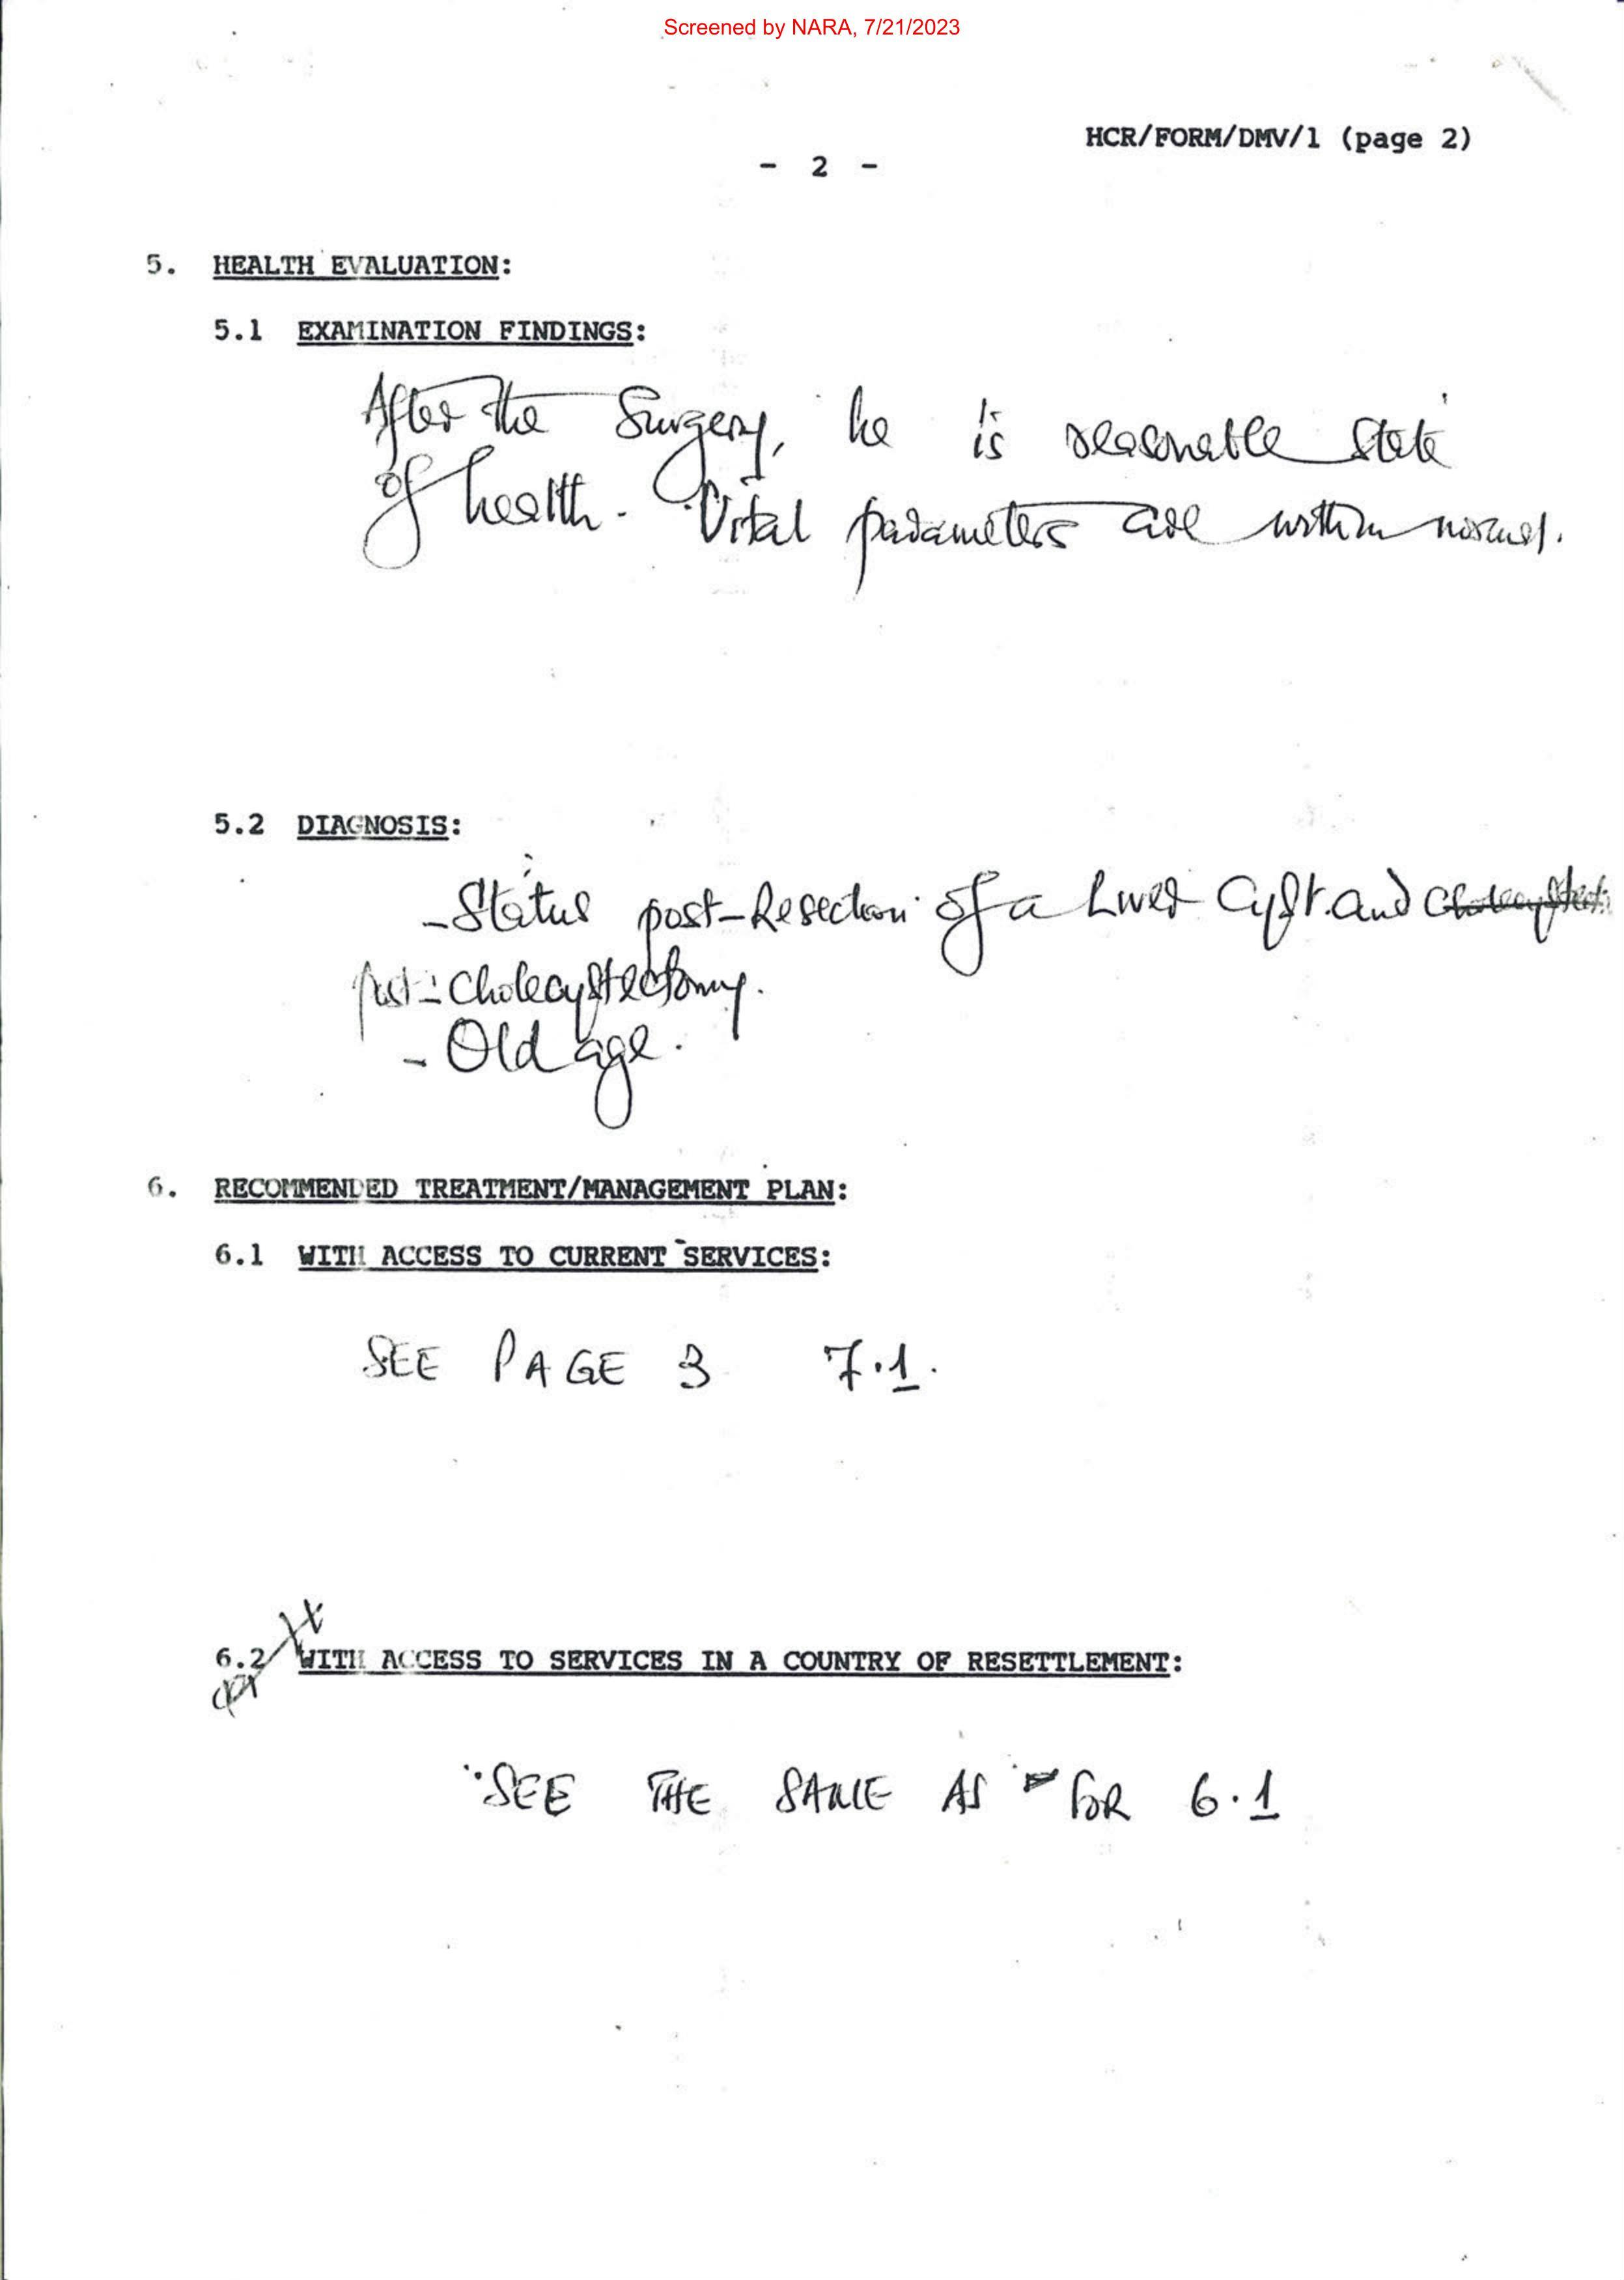 Screened by NARA, 7/21/2023
HCR/FORM/DMV/1 (page 2)
- 2 -
5. HEALTH EVALUATION:
5.1 EXAMINATION FINDINGS:
After the Surgery, he is reasonable state
of health. Vital parameters are within normal.
5.2 DIAGNOSIS:
- Status post-Resection of a Liver Cyst and
post-Cholecystectomy.
- Old age.
6. RECOMMENDED TREATMENT/MANAGEMENT PLAN:
6.1 WITH ACCESS TO CURRENT SERVICES:
SEE PAGE 3 7.1.
6.2 WITH ACCESS TO SERVICES IN A COUNTRY OF RESETTLEMENT:
SEE THE SAME AS FOR 6.1